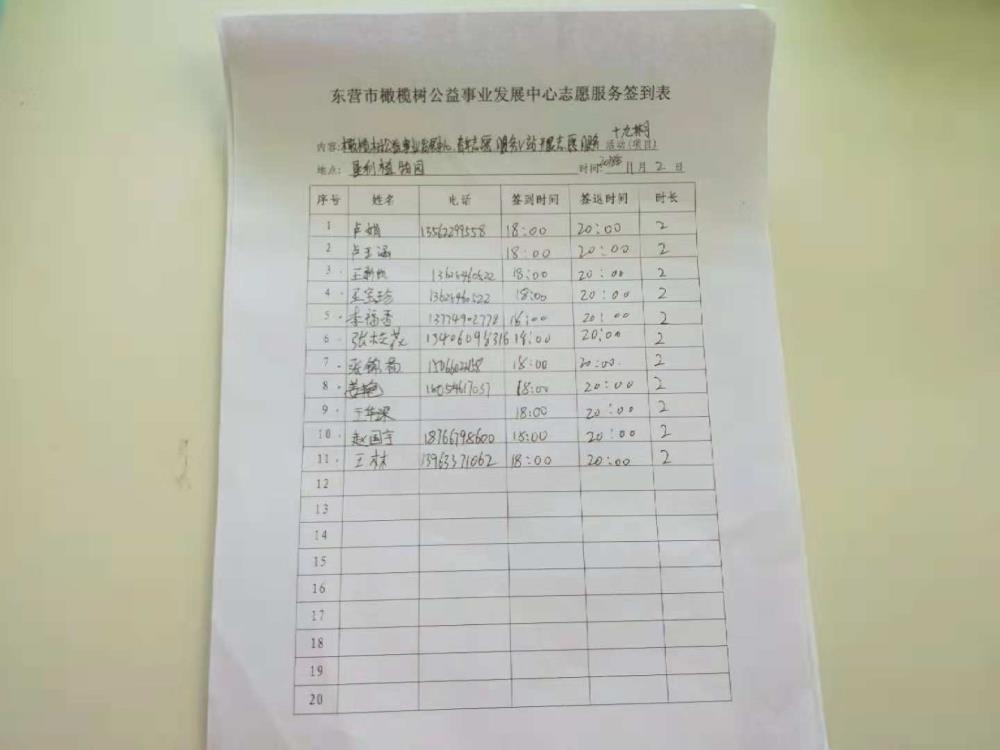 东营市橄榄树公益事业发展中心志愿服务签到表
内容: 橄榄树公益事业发展中心 志愿服务V站 志愿服务 活动(项目)
地点: 垦利植物园 时间: 11月2日
序号 姓名 电话 签到时间 签退时间 时长
1 卢娟 13562299558 18:00 20:00 2
2 卢玉涵 18:00 20:00 2
3 18:00 20:00 2
4 13624460522 18:00 20:00 2
5 李福香 13774902778 20:00 2
6 18:00 20:00 2
7 18:00 20:00 2
8 18:00 20:00 2
9 18:00 20:00 2
10 赵国宇 18766798600 18:00 20:00 2
11 王林 13963371062 18:00 20:00 2
12
13
14
15
16
17
18
19
20